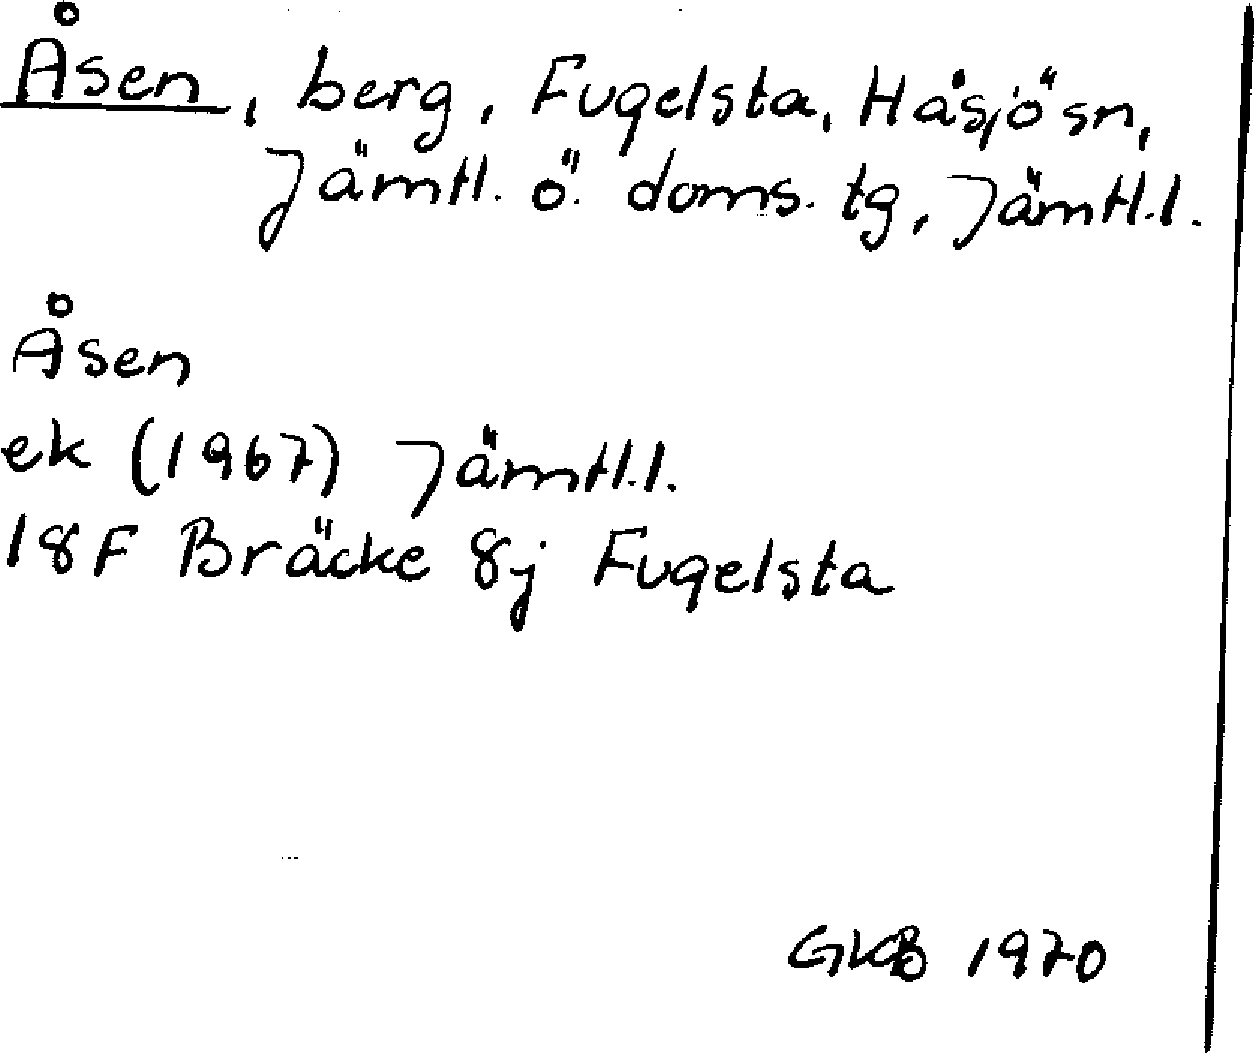 Åsen, berg, Fugelsta, Håsjö sn,
Jämtl. ö. doms. tg, Jämtl.l.
Åsen
ek (1967) Jämtl.l.
18F Bräcke 8j Fugelsta
GKB 1970